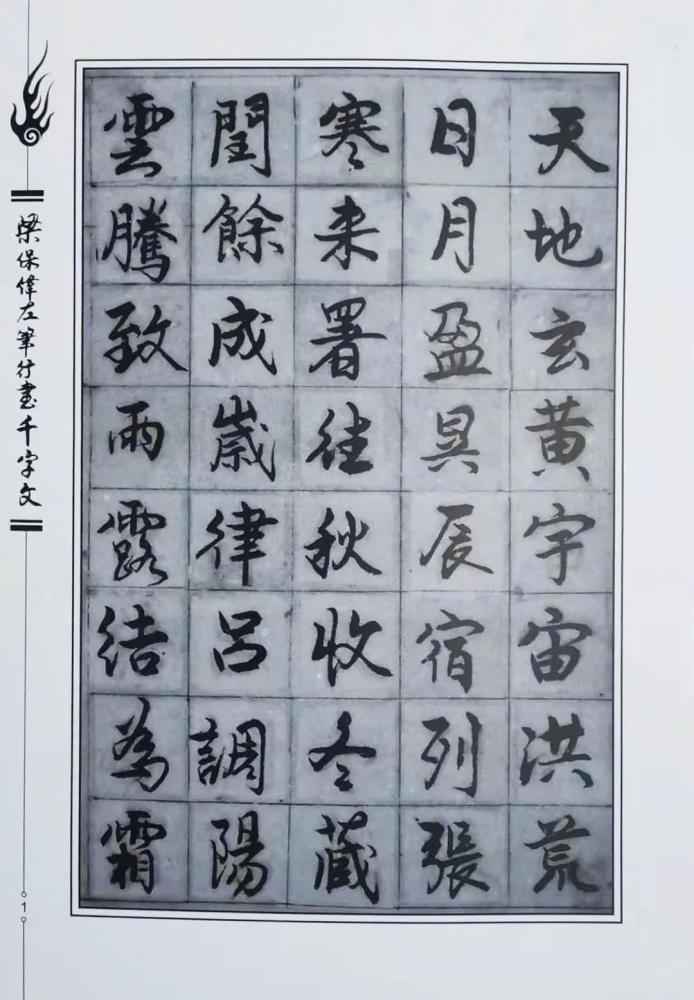 天地玄黄宇宙洪荒
日月盈昃辰宿列張
寒来暑往秋收冬蔵
閏餘成歲律吕調陽
雲騰致雨露結為霜
梁保偉左筆行書千字文
1